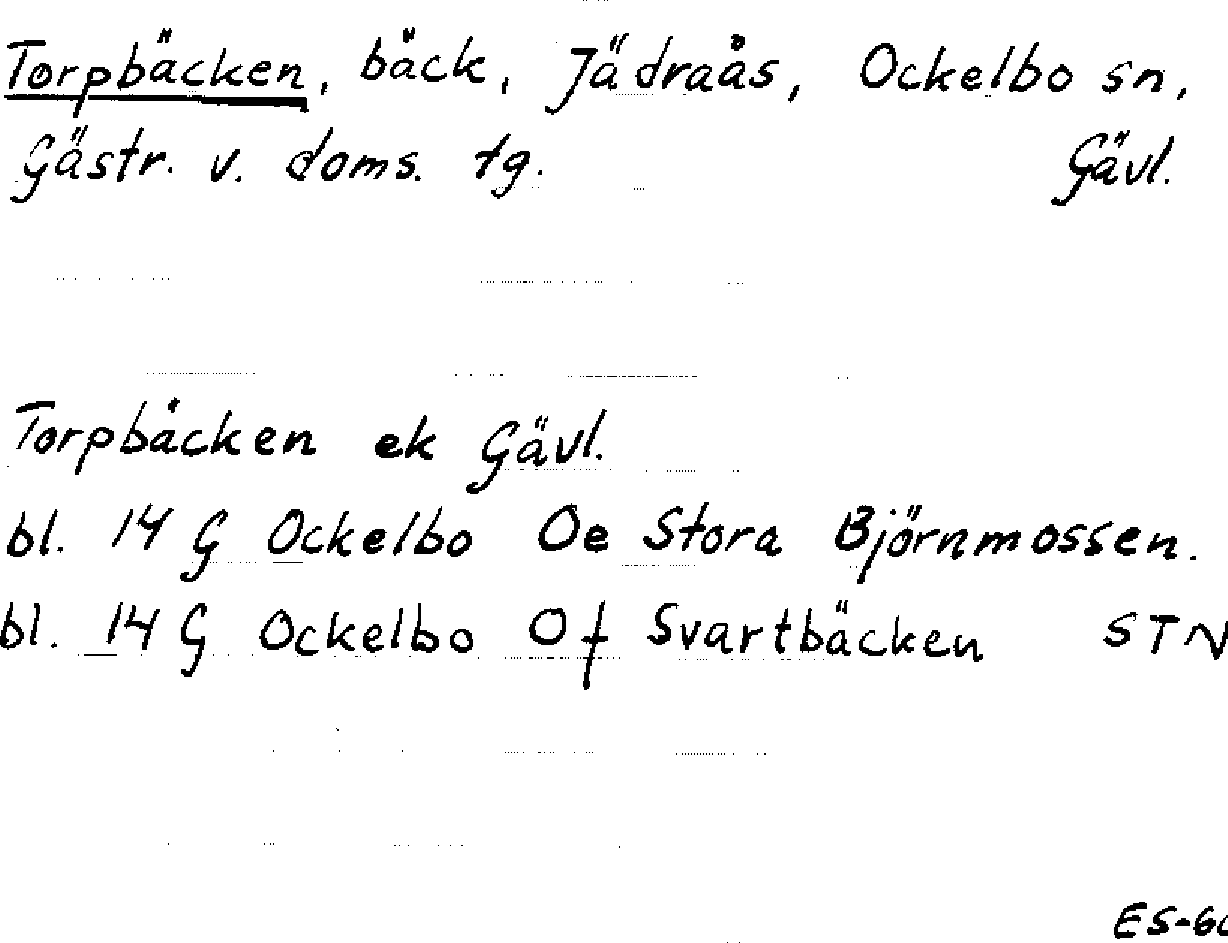 Torpbäcken, bäck, Jädraås, Ockelbo sn,
Gästr. v. doms. tg. Gävl.
Torpbäcken ek Gävl.
bl. 14 G Ockelbo 0e Stora Björnmossen.
bl. 14 G Ockelbo 0f Svartbäcken STN